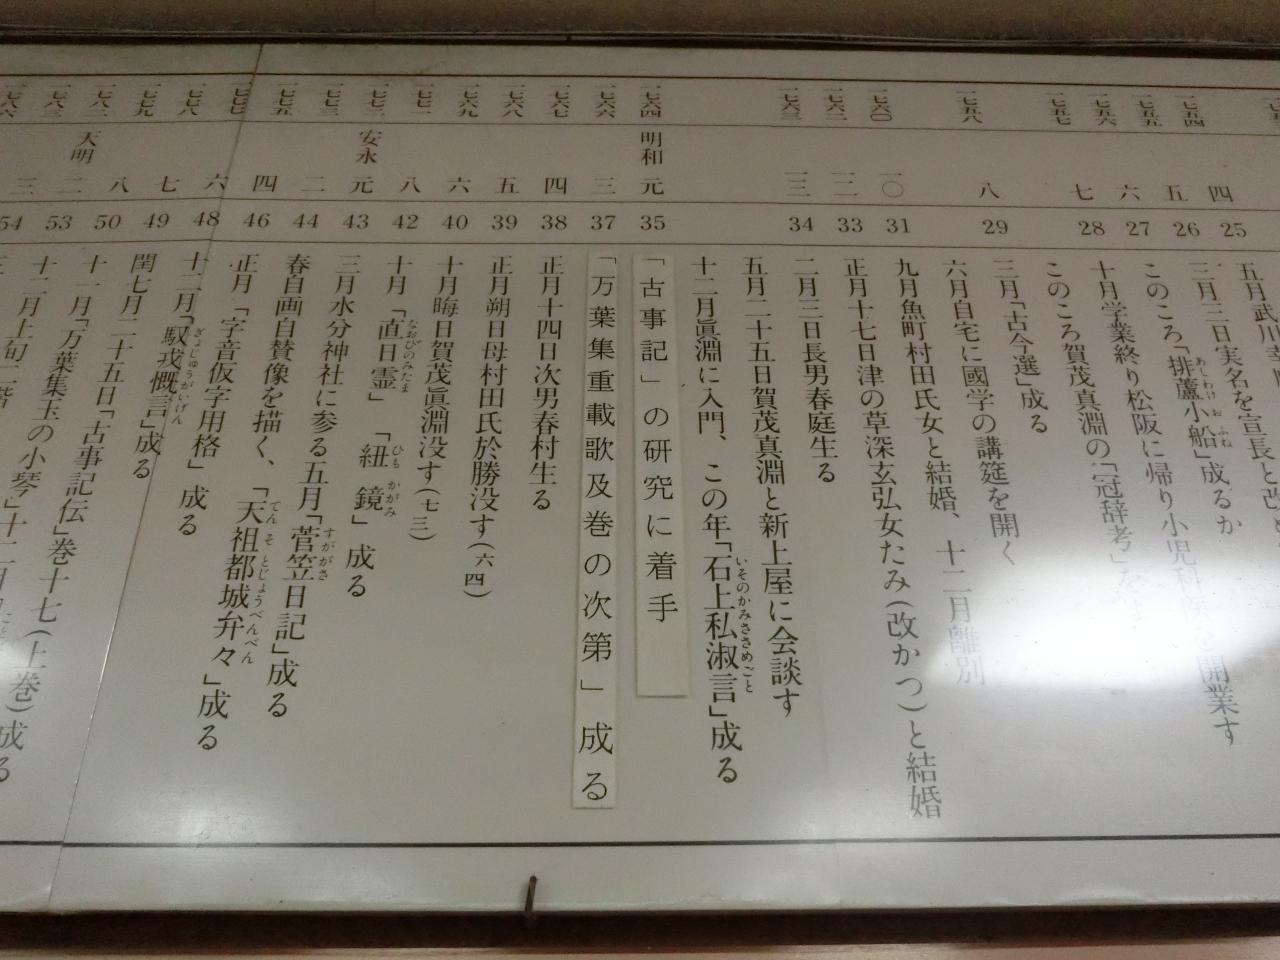 五月武川幸
四 25 三月三日実名を宣長と改
一七五四
一七五五 五 26 このころ「排蘆小船」成るか
あしわけ お ふね
一七五六 六 27 十月学業終り松阪に帰り小児科医を開業す
一七五七 七 28 このころ賀茂真淵の「冠辞考」を
三月「古今選」成る
一七五八 八 29 六月自宅に國学の講筵を開く
九月魚町村田氏女と結婚、十二月離別
一七六〇 一〇 31 正月十七日津の草深玄弘女たみ(改かつ)と結婚
一七六二 一二 33 二月三日長男春庭生る
一七六三 一三 34 五月二十五日賀茂真淵と新上屋に会談す
十二月眞淵に入門、この年「石上私淑言」成る
いそのかみささめごと
一七六四 明和 元 35 「古事記」の研究に着手
一七六六 三 37 「万葉集重載歌及巻の次第」成る
一七六七 四 38 正月十四日次男春村生る
一七六八 五 39 正月朔日母村田氏於勝没す(六四)
一七六九 六 40 十月晦日賀茂眞淵没す(七三)
一七七一 八 42 十月「直日霊」「紐鏡」成る
なおびのみたま ひも かがみ
一七七二 安永 元 43 三月水分神社に参る五月「菅笠日記」成る
すががさ
一七七三 二 44 春自画自賛像を描く、「天祖都城弁々」成る
てん そ とじょうべんべん
一七七五 四 46 正月「字音仮字用格」成る
一七七七 六 48 十二月「馭戎慨言」成る
ぎょじゅうがいげん
一七七八 七 49 閏七月二十五日「古事記伝」巻十七(上巻)成る
一七七九 八 50 十一月「万葉集玉の小琴」
一七八二 天明 二 53 十二月上旬二階
一七八三 三 54